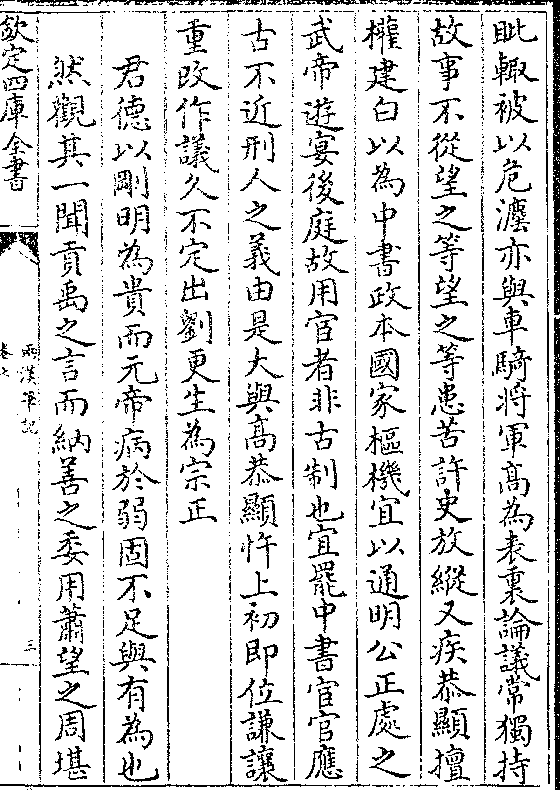 眦輙被以危瀍亦與車騎將軍髙為表裏論議常獨持
故事不從望之等望之等患苦許史放縱又疾恭顯擅
權建白以為中書政本國家樞機宜以通明公正處之
武帝遊宴後庭故用宦者非古制也宜罷中書宦官應
古不近刑人之義由是大與髙恭顯忤上初即位謙讓
重改作議久不定出劉更生為宗正
君德以剛明為貴而元帝病於弱固不足與有為也
然觀其一聞貢禹之言而納善之委用蕭望之周堪
欽定四庫全書
兩漢筆記
三